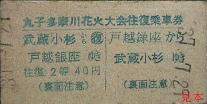 丸子多摩川花火大会往復乗車券
武蔵小杉から 戸越銀座から
戸越銀座ゆき 武蔵小杉ゆき
往復2等40円
(裏面注意) (裏面注意)
見本